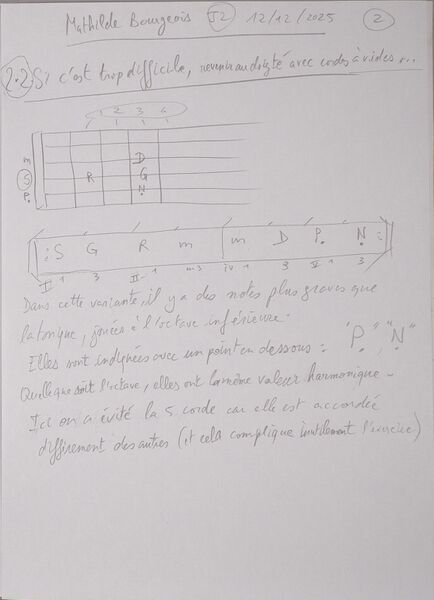 Mathilde Bourgeois J2 12/12/2025 2
2.2 Si c'est trop difficile, revenir au doigté avec cordes à vides...
1 2 3 4
1 1 1 1
m D
S R G
P. N.
:S G R m m D P. N. :
I 1 3 II-1 m3 IV 1 3 V 1 3
Dans cette variante, il y a des notes plus graves que
la tonique, jouées à l'octave inférieure.
Elles sont indiquées avec un point en dessous : "P.", "N."
Quelle que soit l'octave, elles ont la même valeur harmonique -
Ici on a évité la 5 corde car elle est accordée
différement des autres (et cela complique inutilement l'exercice)